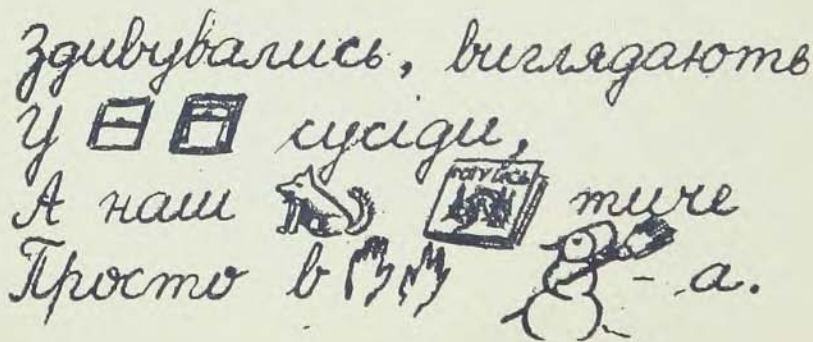 Здивувались, виглядають
У сусіди,
А наш тиче
Просто в - а.